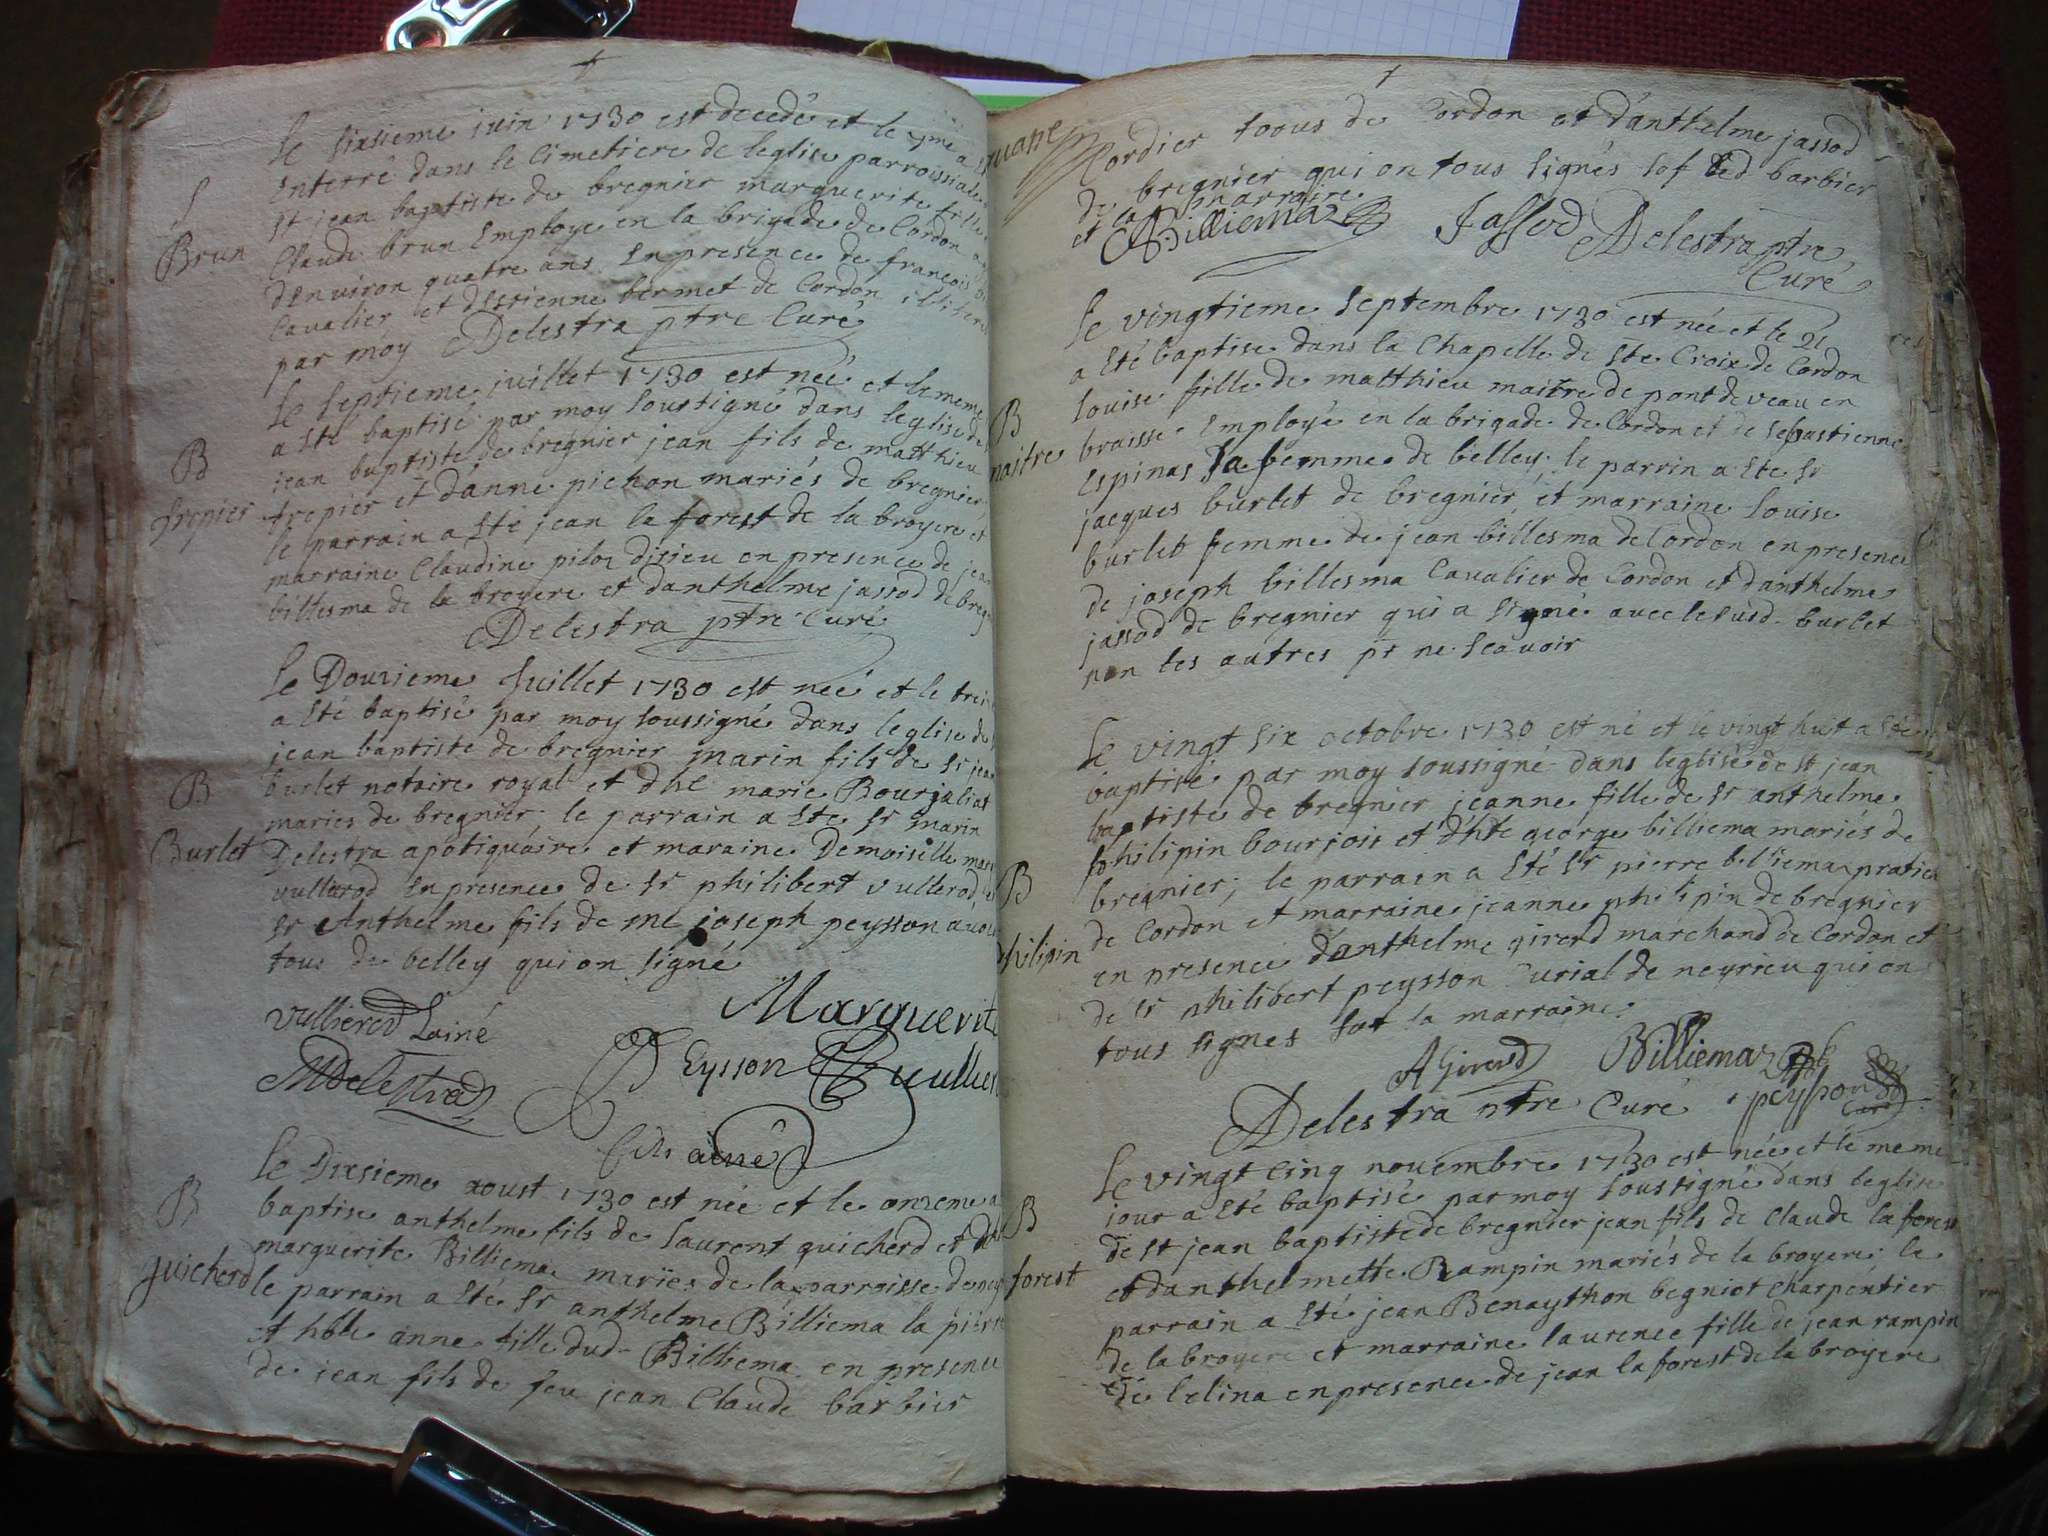 Le sixsieme juin 1730 est decedé et le 7me a
Enterré dans le cimetiere de leglise parroissiale
S
St jean baptiste de bregnier marguerite fille
Brun
Claude brun Employe en la brigade de Cordon
d'Environ quatre ans En presence de francois
Cavalier et d'estienne bermet de Cordon
par moy Delestra ptre Curé
Le septieme juillet 1730 est neé et le meme
a Eté baptisé par moy soussigné dans leglise de
B
jean baptiste de bregnier jean fils de matthieu
frepier
trepier et d'anne pichon mariés de bregnier
le parrain a Eté jean la forest de la broyere et
marraine Claudine piloz disieu en presence de jean
billesma de la broyere et danthelme jassod de bregn
Delestra ptre Curé
Le Douzieme Juillet 1730 est neé et le trei
a Eté baptisé par moy soussigné dans leglise de
jean baptiste de bregnier marin fils de Sr jean
B
burlet notaire royal et dhe marie Bourjaliat
mariés de bregnier le parrain a Ete Sr marin
Burlet
Delestra apotiquaire et maraine Demoiselle
vullierod En presence de Sr philibert vullerod
Sr Anthelme fils de me joseph peysson
tous de belley qui on signé
Vullierod Lainé
Marguerite
MDelestra
PEysson
fils ainé
Le Dixsieme aoust 1730 est neé et le onzeme a
B
baptise anthelme fils de laurent guicherd et
marguerite Billiema mariés de la parroisse de
guicherd
le parrain a Eté Sr anthelme Billiema la pierre
et hble anne fille dud Billiema en presence
de jean fils de feu jean Claude barbier
Cordier tous de Cordon et d'anthelme jassod
de bregnier qui on tous signés sof led barbier
et la marraine
Billiemaz Jassod Delestra ptre
Curé
Le vingtieme septembre 1730 est née et le 21
a Eté baptise dans la Chapelle de Ste Croix de Cordon
louise fille de matthieu maitre de pont de veau en
B
braisse Employé en la brigade de Cordon et de sebastienne
maitre
Espinas Sa femme de belley le parrin a Ete Sr
jacques burlet de bregnier et marraine louise
burlet femme de jean billesma de Cordon en presence
de joseph billesma Cavalier de Cordon et danthelme
jassod de bregnier qui a signé avec le susd burlet
non les autres pr ne scavoir
Le vingt six octobre 1730 est né et le vingt huit a Eté
baptisé par moy soussigné dans leglise de st jean
baptiste de bregnier jeanne fille de Sr anthelme
philipin bourjois et d'hte george billiema mariés de
B
bregnier; le parrain a Eté Sr pierre billiema praticien
de Cordon et marraine jeanne philipin de bregnier
philipin
en presence d'anthelme girerd marchand de Cordon et
de Sr philibert peysson Curial de neyrieu qui on
tous signes sof la marraine
A Girerd Billiemaz peysson
Delestra ptre Curé
Curé
Le vingt cinq novembre 1730 est née et le meme
B
jour a Eté baptisé par moy soussigné dans leglise
de St jean baptiste de bregnier jean fils de Claude la forest
forest
et danthelmette Rampin mariés de la broyere le
parrain a Eté jean Benaython begniot Charpentier
de la broyere et marraine laurence fille de jean rampin
de lelina en presence de jean la forest de la broyere